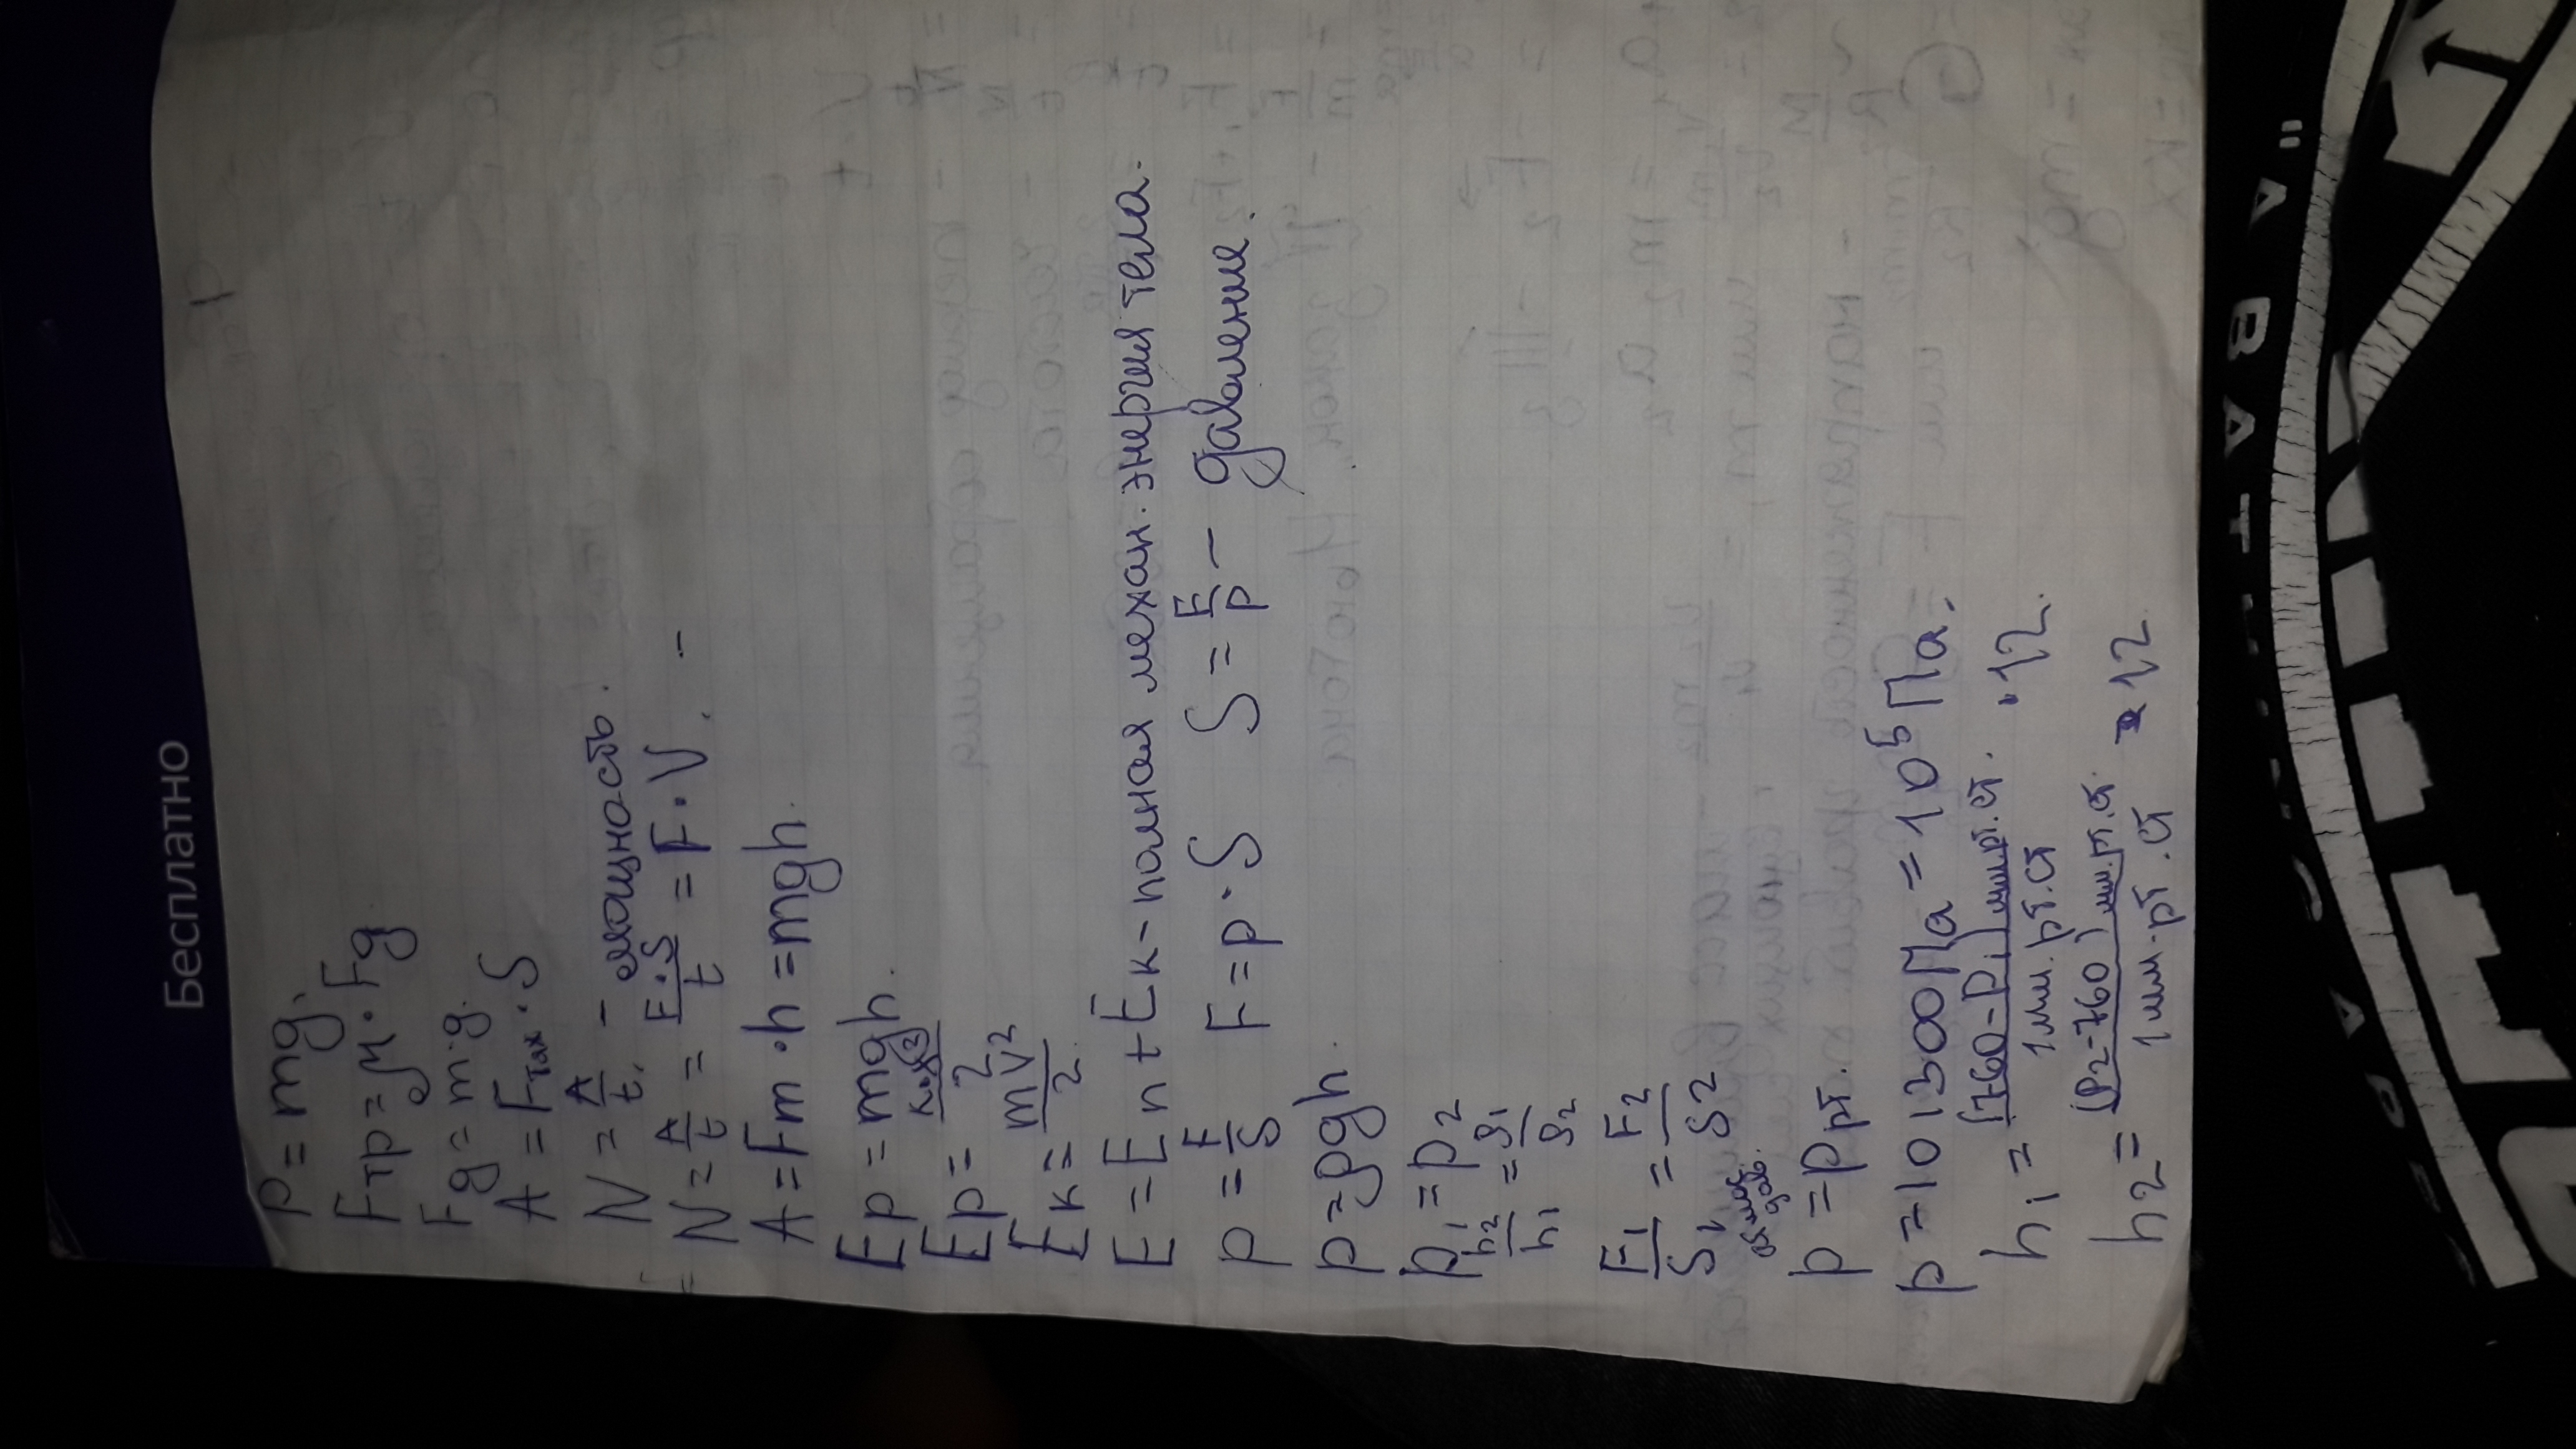 Бесплатно
P = mg.
Fтр = μ · Fg
Fg = m·g.
A = Fтах · S
N = A/t. – мощность.
N = A/t = F·S/t = F·V.
A = Fm · h = mgh.
Ep = mgh.
Ep = k·x²/2
Eк = mv²/2
E = En + Eк – полная механ. энергия тела.
p = F/S F = p · S S = F/p – давление.
p = ρgh.
p1 = p2
h2/h1 = ρ1/ρ2
F1/S1 = F2/S2
p = Pрт.
p = 101300 Па = 10⁵ Па.
h1 = (760 – P1) мм рт. ст. / 1 мм. рт. ст · 12.
h2 = (P2 – 760) мм. рт. ст. / 1 мм. рт. ст · 12
A BAT